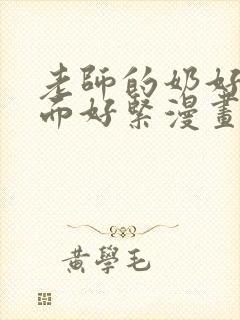 老師的奶好
而好緊漫畫
黃學毛